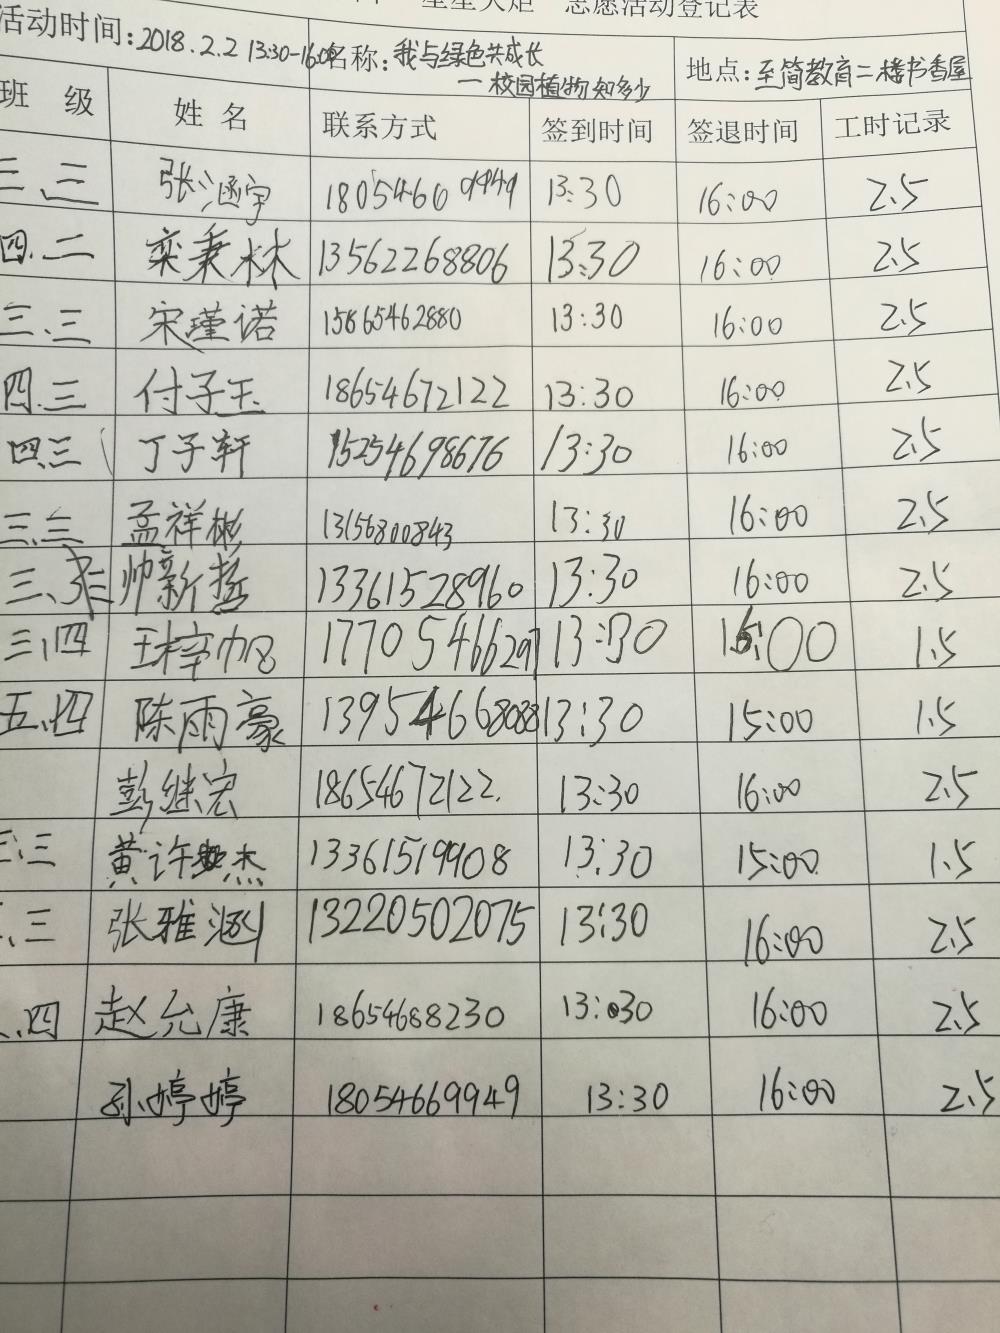 志愿活动登记表
活动时间:2018.2.2 13:30-16:00 名称:我与绿色共成长 地点:至简教育二楼书香屋
一校园植物知多少
班 级 姓 名 联系方式 签到时间 签退时间 工时记录
三、三 张涵宇 13:30 16:00 2.5
四、二 栾秉林 13562268806 13:30 16:00 2.5
三、三 宋瑾诺 15865462880 13:30 16:00 2.5
四、三 付子玉 18654672122 13:30 16:00 2.5
四、三 丁子轩 15254698676 13:30 16:00 2.5
三、三 孟祥彬 13156800843 13:30 16:00 2.5
三、三 帅新哲 13361528960 13:30 16:00 2.5
三、四 王梓帆 17705466297 13:30 15:00 1.5
五、四 陈雨豪 13954668088 13:30 15:00 1.5
彭继宏 18654672122. 13:30 16:00 2.5
三、三 黄许杰 13361519908 13:30 15:00 1.5
、三 张雅涵 13220502075 13:30 16:00 2.5
、四 赵允康 18654688230 13:30 16:00 2.5
孙婷婷 18054669949 13:30 16:00 2.5